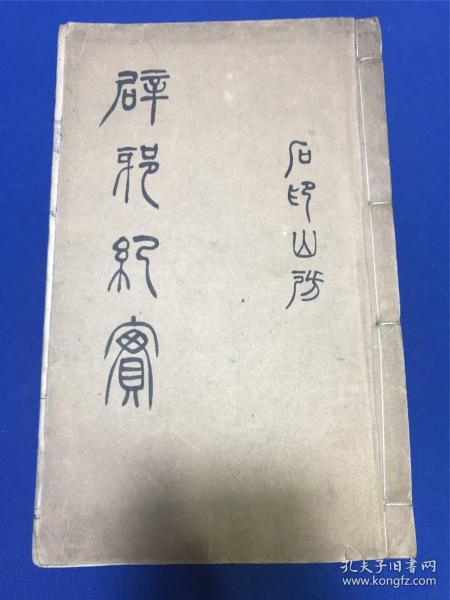 辟邪紀實
石印山房
孔夫子旧书网
www.kongfz.com